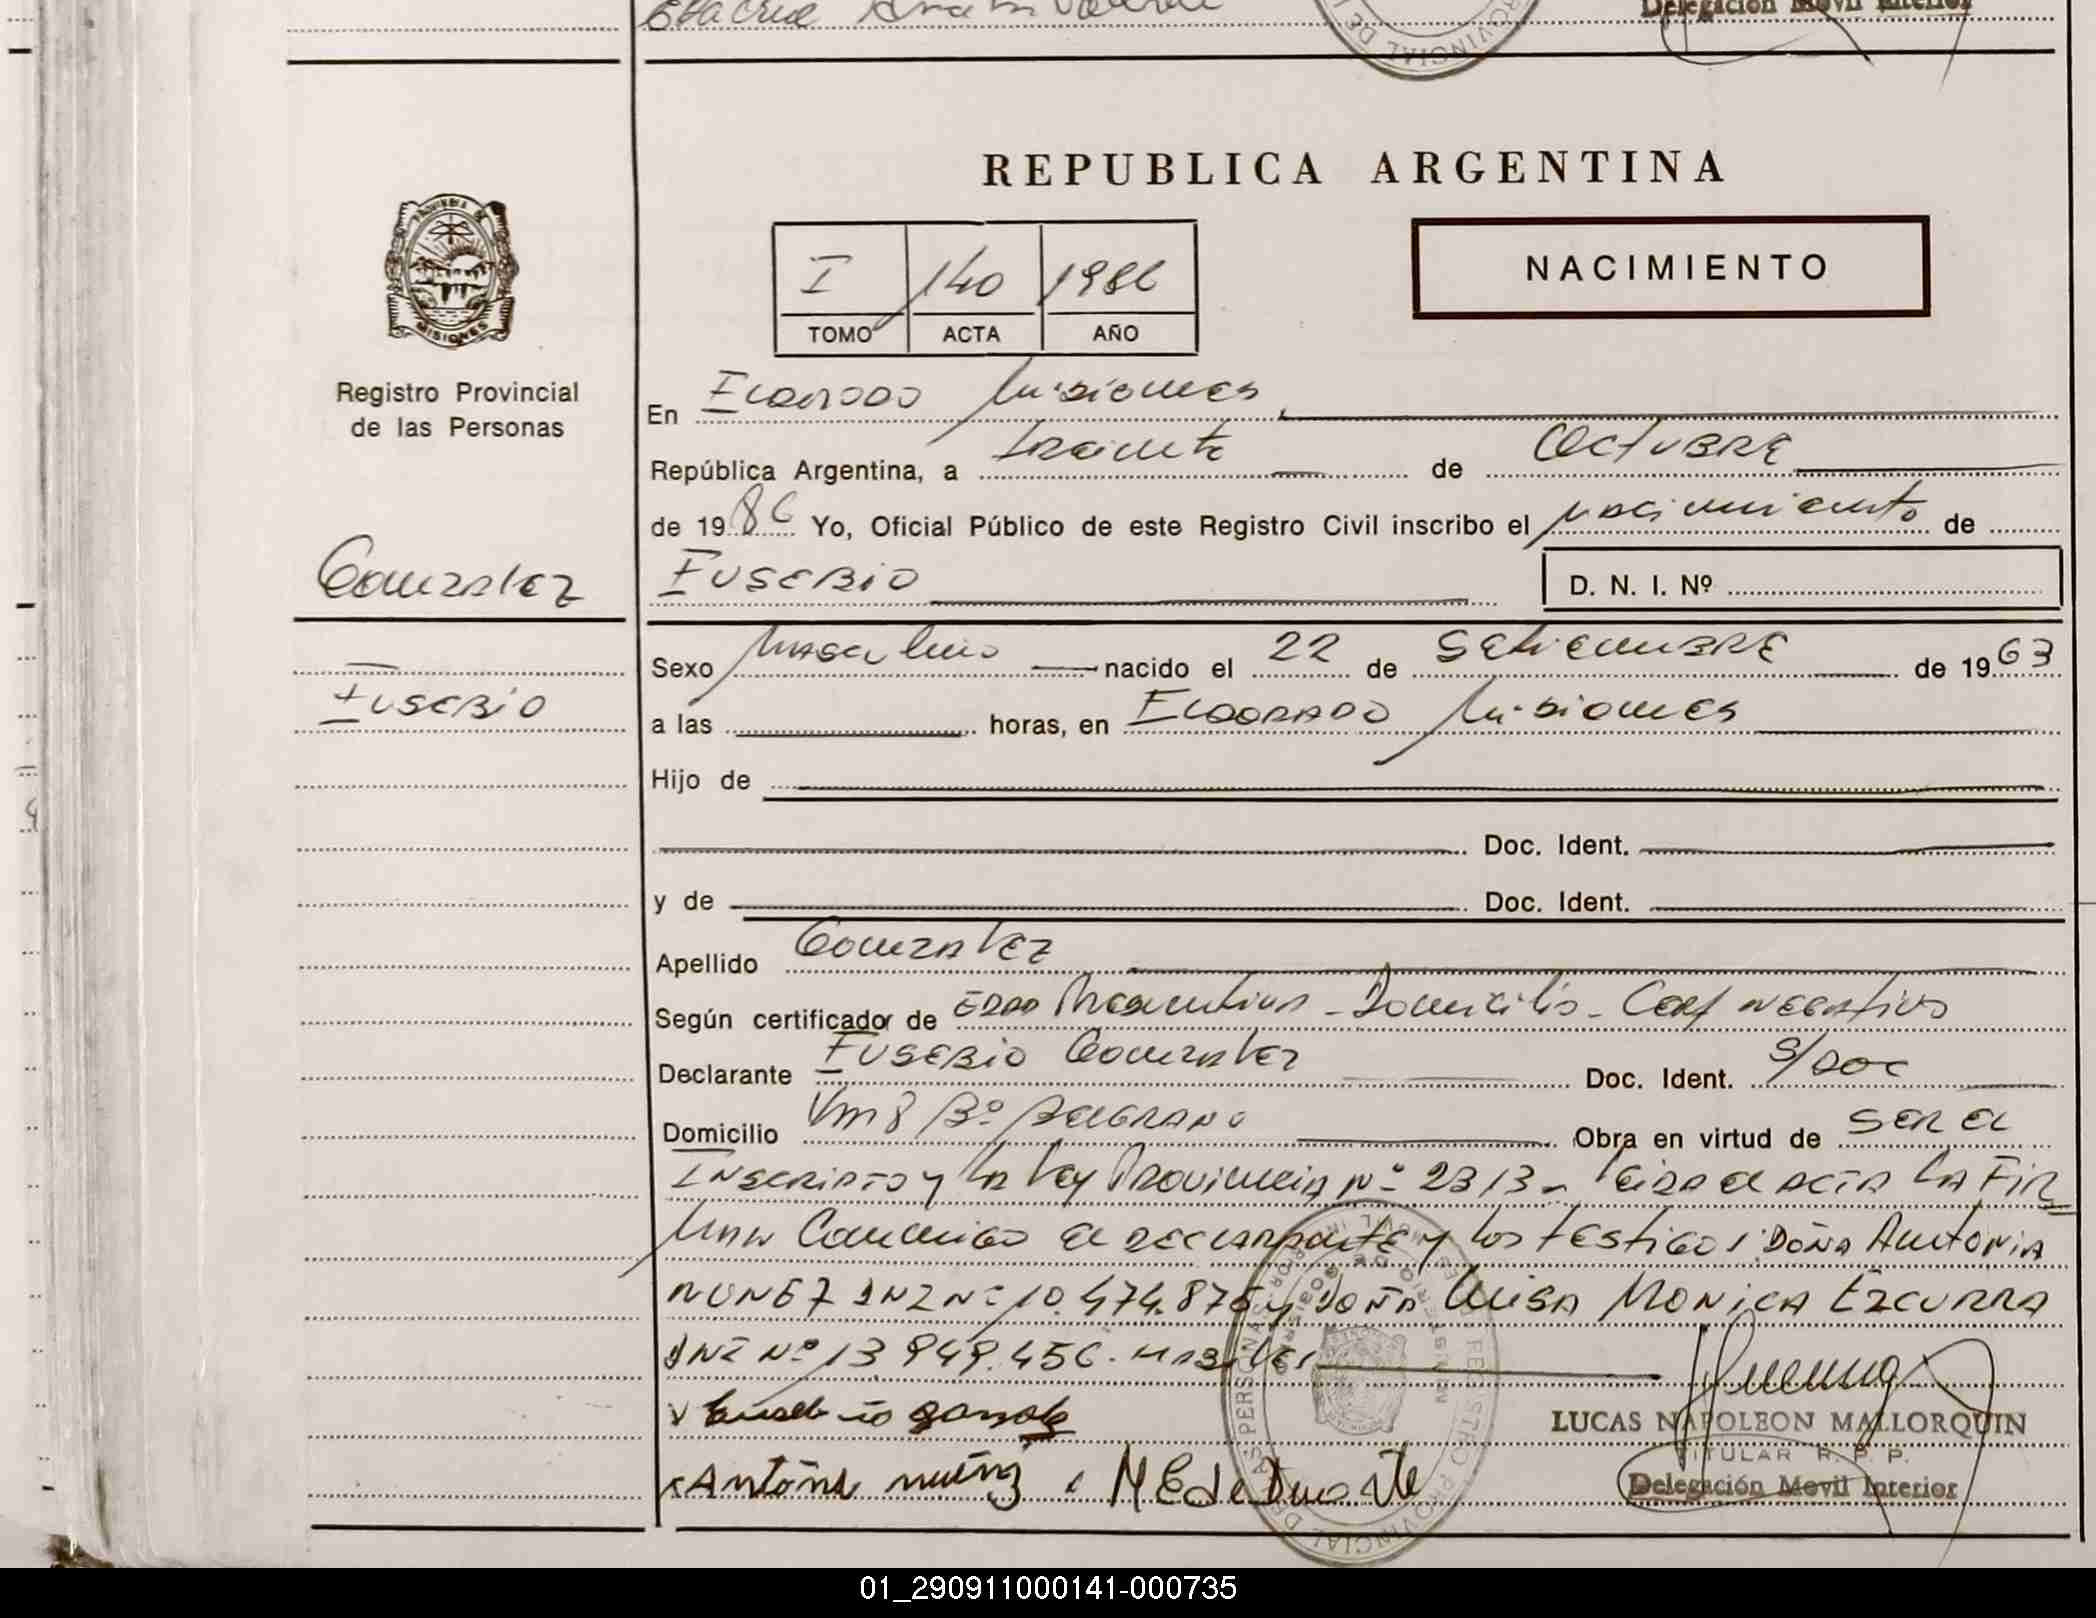 Delegación Movil Interior
PROVINCIAL DE
REPUBLICA ARGENTINA
PROVINCIA DE
MISIONES
I 140 1986
TOMO ACTA AÑO
NACIMIENTO
Registro Provincial
de las Personas
En Eldorado Misiones
República Argentina, a treinta de Octubre
de 1986 Yo, Oficial Público de este Registro Civil inscribo el nacimiento de
Gonzalez
Eusebio D. N. I. Nº
Sexo Masculino nacido el 22 de Setiembre de 1963
Eusebio
a las horas, en Eldorado Misiones
Hijo de
Doc. Ident.
y de Doc. Ident.
Apellido Gonzalez
Según certificado de Edad Presuntiva - Domicilio - Cert Negativo
Declarante Eusebio Gonzalez Doc. Ident. S/Doc
Domicilio Km 8 Bº Belgrano Obra en virtud de ser el
Inscripto y la Ley Provincia Nº 2313 - Leida el acta la fir
man Conmigo el declarante y los testigos: Doña Antonia
Nuñez DNI Nº 10.474.876 y Doña Luisa Monica Ezcurra
DNI Nº 13.949.456. Habiles
Eusebio gonzalez
LUCAS NAPOLEON MALLORQUIN
TITULAR R. P. P.
Antonia nuñez MEdeDuarte
Delegación Movil Interior
01_290911000141-000735